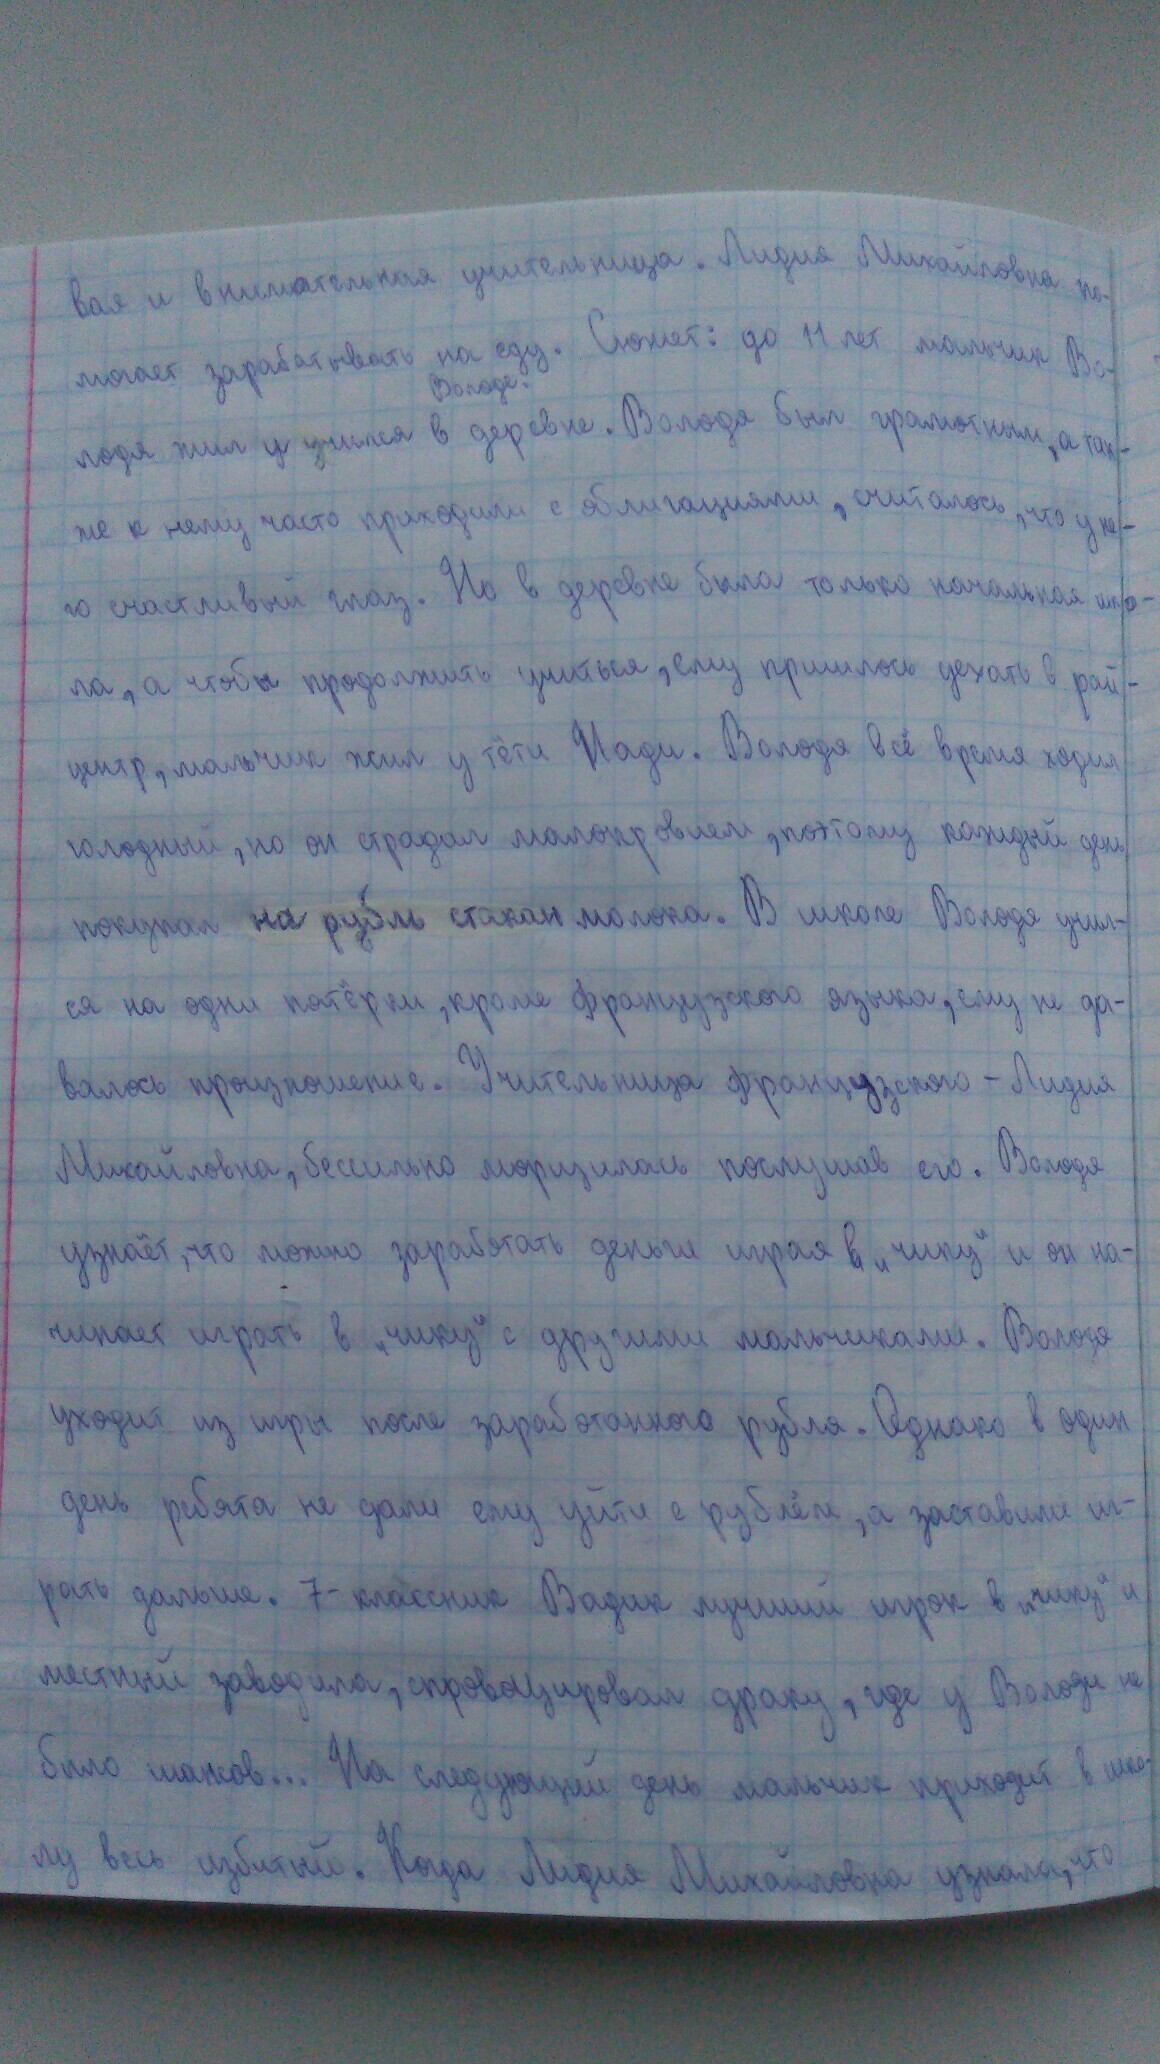 вая и внимательная учительница. Лидия Михайловна по-
могает зарабатывать на еду. Сюжет: до 11 лет мальчик Во-
Володе.
лодя жил и учился в деревне. Володя был грамотным, а так-
же к нему часто приходили с облигациями, считалось, что у не-
го счастливый глаз. Но в деревне была только начальная шко-
ла, а чтобы продолжить учиться, ему пришлось уехать в рай-
центр, мальчик жил у тёти Нади. Володя всё время ходил
голодный, но он страдал малокровием, поэтому каждый день
покупал на рубль стакан молока. В школе Володя учил-
ся на одни пятёрки, кроме французского языка, ему не да-
валось произношение. Учительница французского - Лидия
Михайловна, бессильно морщилась послушав его. Володя
узнаёт, что можно заработать деньги играя в „чику" и он на-
чинает играть в „чику" с другими мальчиками. Володя
уходит из игры после заработанного рубля. Однако в один
день ребята не дали ему уйти с рублём, а заставили иг-
рать дальше. 7-классник Вадик лучший игрок в „чику" и
местный заводила, спровоцировал драку, где у Володи не
было шансов... На следующий день мальчик приходит в шко-
лу весь избитый. Когда Лидия Михайловна узнала, что